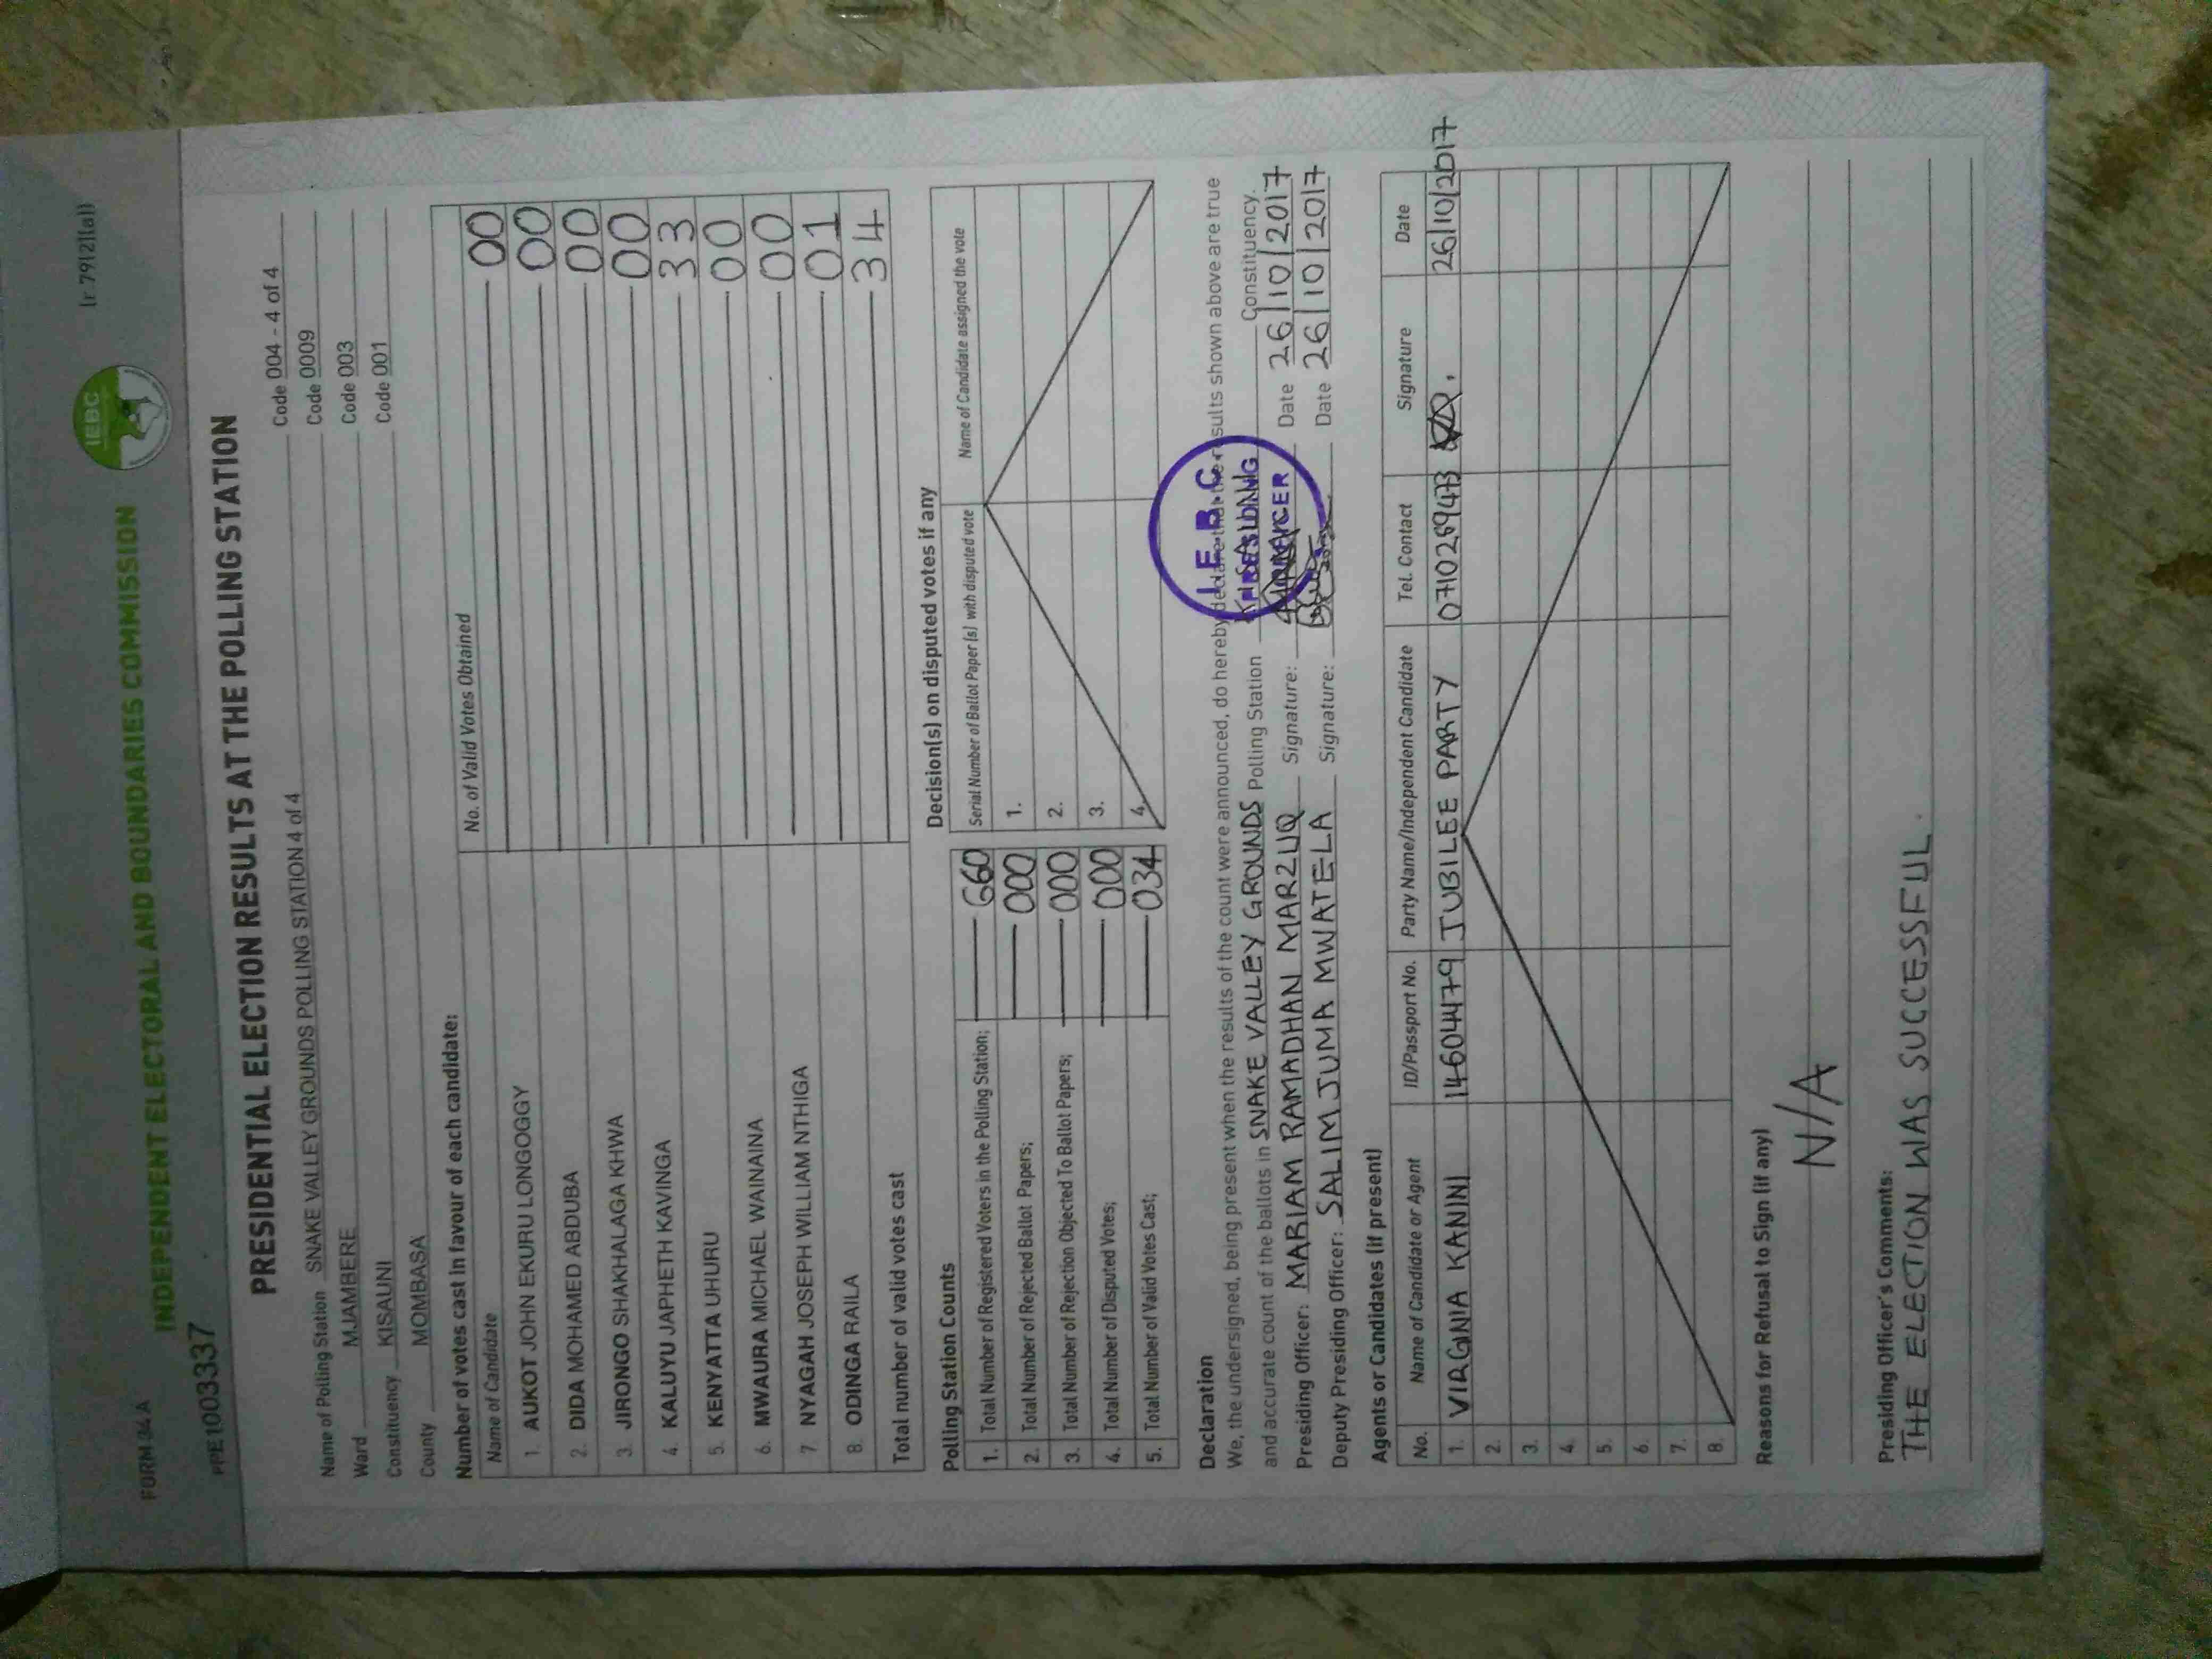 FORM 34A
INDEPENDENT ELECTORAL AND BOUNDARIES COMMISSION
IEBC
(r 79(2)(a))
PPE1003337
PRESIDENTIAL ELECTION RESULTS AT THE POLLING STATION
Name of Polling Station SNAKE VALLEY GROUNDS POLLING STATION 4 of 4 Code 004 - 4 of 4
Ward MJAMBERE Code 0009
Constituency KISAUNI Code 003
County MOMBASA Code 001
Number of votes cast in favour of each candidate:
Name of Candidate No. of Valid Votes Obtained
1. AUKOT JOHN EKURU LONGOGGY 00
2. DIDA MOHAMED ABDUBA 00
3. JIRONGO SHAKHALAGA KHWA 00
4. KALUYU JAPHETH KAVINGA 00
5. KENYATTA UHURU 33
6. MWAURA MICHAEL WAINAINA 00
7. NYAGAH JOSEPH WILLIAM NTHIGA 00
8. ODINGA RAILA 01
Total number of valid votes cast 34
Polling Station Counts
1. Total Number of Registered Voters in the Polling Station; 660
2. Total Number of Rejected Ballot Papers; 000
3. Total Number of Rejection Objected To Ballot Papers; 000
4. Total Number of Disputed Votes; 000
5. Total Number of Valid Votes Cast; 034
Decision(s) on disputed votes if any
Serial Number of Ballot Paper (s) with disputed vote Name of Candidate assigned the vote
1.
2.
3.
4.
Declaration
We, the undersigned, being present when the results of the count were announced, do hereby declare that the results shown above are true
and accurate count of the ballots in SNAKE VALLEY GROUNDS Polling Station KISAUNI Constituency.
Presiding Officer: MARIAM RAMADHAN MARZUQ Signature: Date 26/10/2017
Deputy Presiding Officer: SALIM JUMA MWATELA Signature: Date 26/10/2017
I.E.B.C
PRESIDING
OFFICER
Agents or Candidates (if present)
No. Name of Candidate or Agent ID/Passport No. Party Name/Independent Candidate Tel. Contact Signature Date
1. VIRGINIA KANINI 14604479 JUBILEE PARTY 0710289473 26/10/2017
2.
3.
4.
5.
6.
7.
8.
Reasons for Refusal to Sign (if any)
N/A
Presiding Officer's Comments:
THE ELECTION WAS SUCCESSFUL.